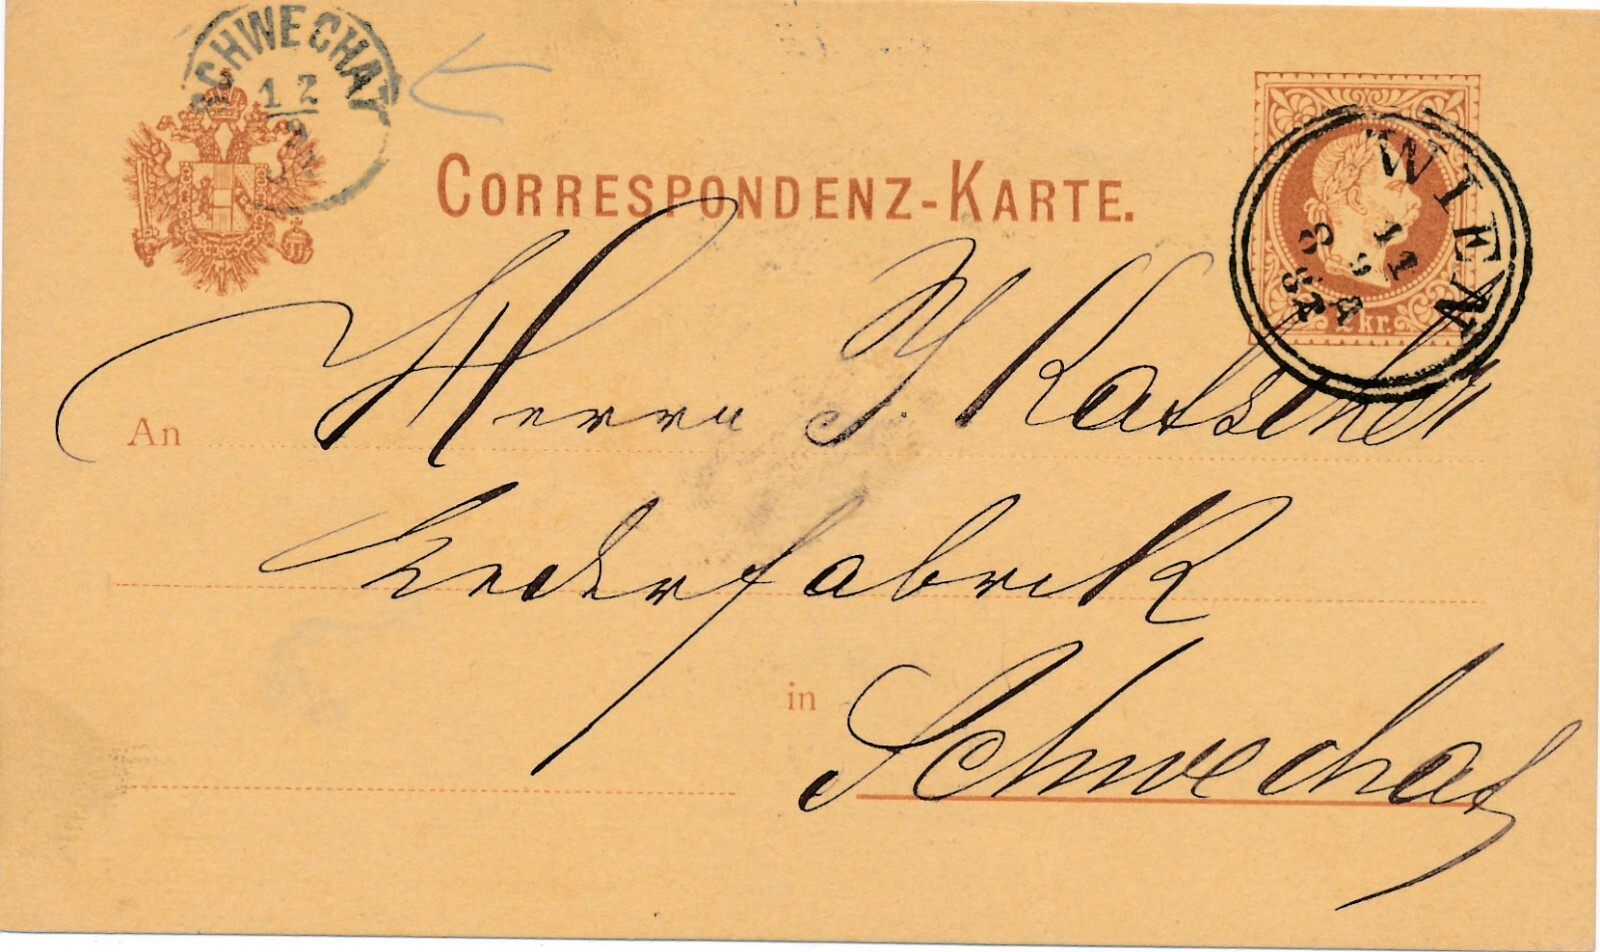 SCHWECHAT
12
CORRESPONDENZ-KARTE.
WIEN
11
2 kr.
An Herrn J. Katscher
Lederfabrik
in Schwechat